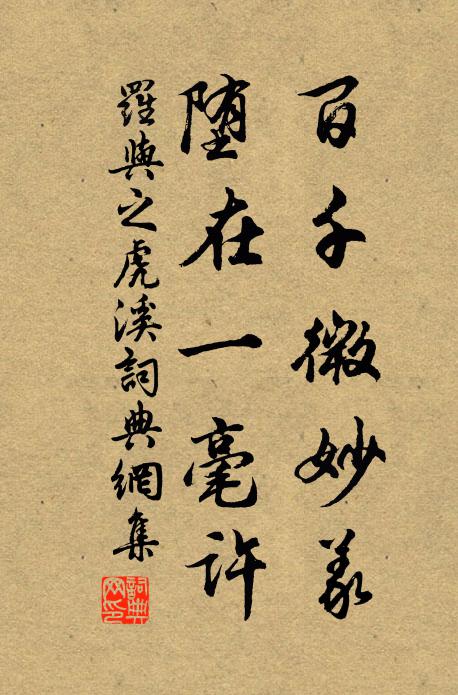 百千微妙義
墮在一毫許
羅與之虎溪詞典網集
詞典網印